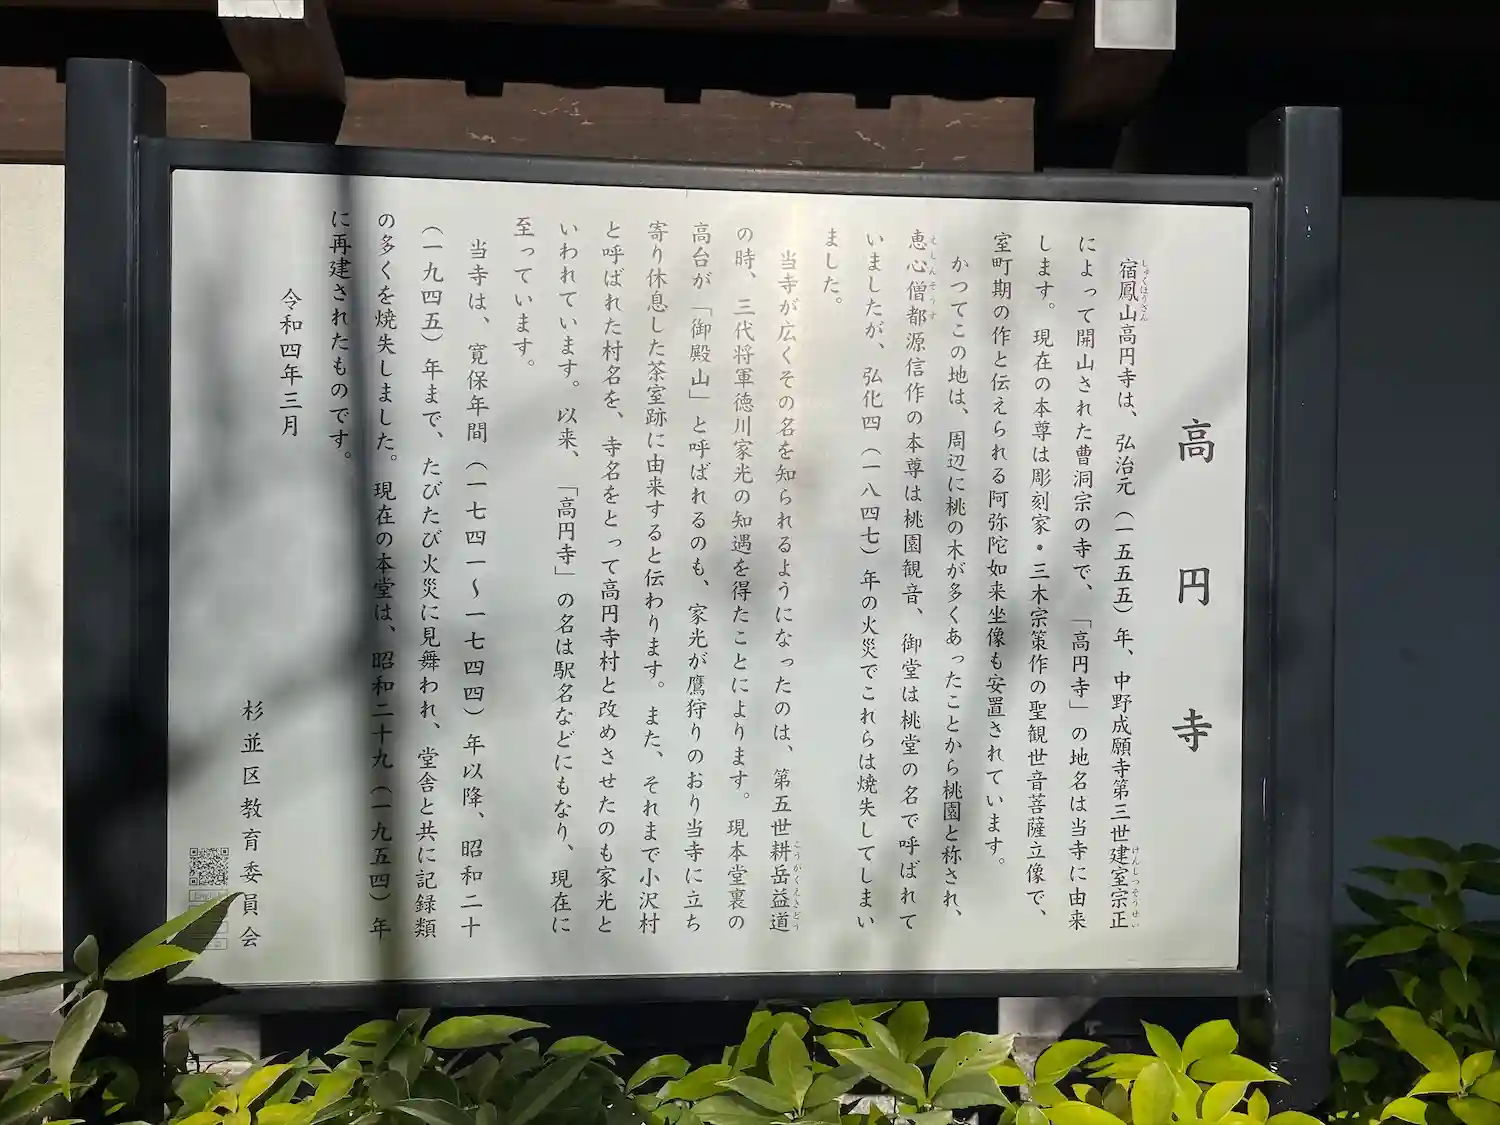 高円寺
宿鳳山高円寺は、弘治元（一五五五）年、中野成願寺第三世建室宗正
しゅくほうさん
けんしっそうせい
によって開山された曹洞宗の寺で、「高円寺」の地名は当寺に由来
します。現在の本尊は彫刻家・三木宗策作の聖観世音菩薩立像で、
室町期の作と伝えられる阿弥陀如来坐像も安置されています。
かつてこの地は、周辺に桃の木が多くあったことから桃園と称され、
恵心僧都源信作の本尊は桃園観音、御堂は桃堂の名で呼ばれて
えしんそうず
いましたが、弘化四（一八四七）年の火災でこれらは焼失してしまい
ました。
当寺が広くその名を知られるようになったのは、第五世耕岳益道
こうがくえきどう
の時、三代将軍徳川家光の知遇を得たことによります。現本堂裏の
高台が「御殿山」と呼ばれるのも、家光が鷹狩りのおり当寺に立ち
寄り休息した茶室跡に由来すると伝わります。また、それまで小沢村
と呼ばれた村名を、寺名をとって高円寺村と改めさせたのも家光と
いわれています。以来、「高円寺」の名は駅名などにもなり、現在に
至っています。
当寺は、寛保年間（一七四一～一七四四）年以降、昭和二十
（一九四五）年まで、たびたび火災に見舞われ、堂舎と共に記録類
の多くを焼失しました。現在の本堂は、昭和二十九（一九五四）年
に再建されたものです。
令和四年三月
杉並区教育委員会